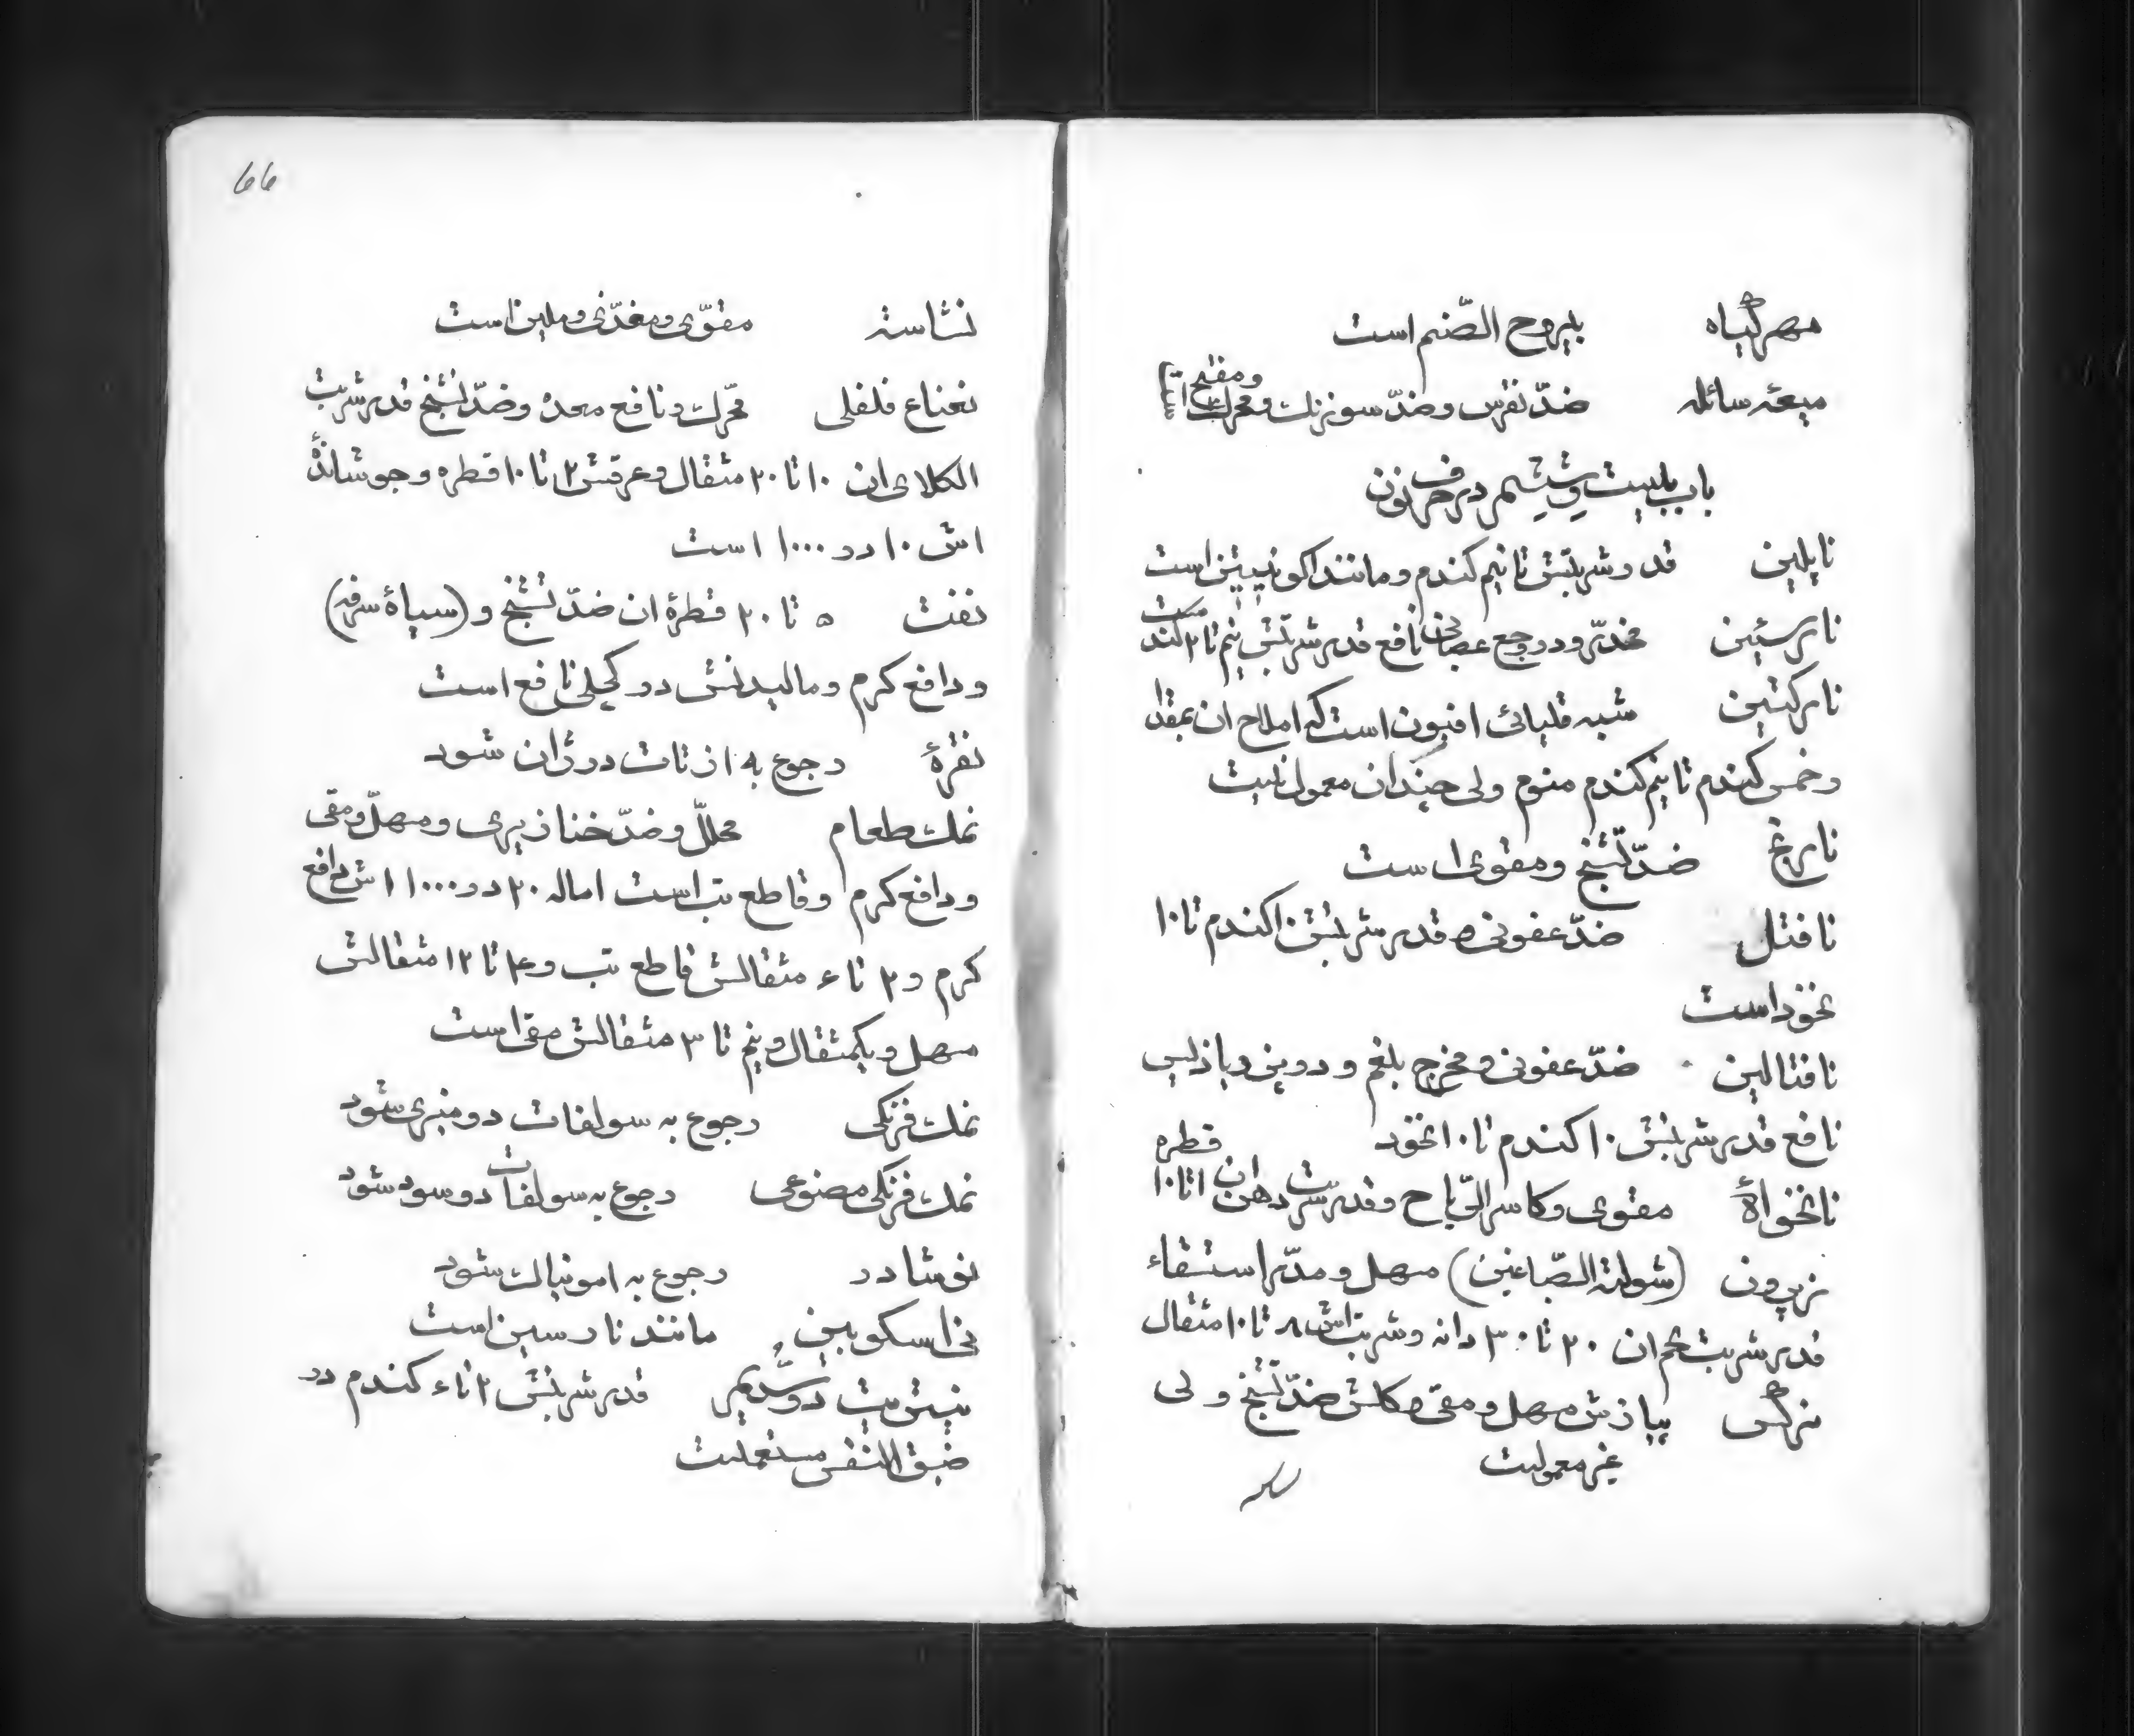 مهر گیاه یبروح الصّنم است
میعهٔ سائله ضدّ نقرس و ضدّ سوزنک و محرک و مفتح است
باب بیست و ششم در حرف نون
ناپلین قدر شربتش تا نیم کندم و مانند اکونیتین است
نارسئین مخدّر و در وجع عصبانی نافع قدر شربتش نیم تا ۲ کندم است
نارکتین شبه قلیائی افیون است که املاح ان بمقدار
و خمس کندم تا نیم کندم منوم ولی چندان معمول نیست
نارنج ضدّ تشنّج و مقوی است
نافتل ضدّ عفونی قدر شربتش ۱۰ کندم تا ۱۰
نخود است
نافتالین ضدّ عفونی و مخرج بلغم و در
نافع قدر شربتش ۱۰ کندم تا ۱۰ نخود
نانخواهٔ مقوی و کاسر الرّیاح و قدر شربت دهن ان ۱ تا ۱۰ قطره
نرپرون (شوکة الصّباغین) مسهل و مدّر استسقاء
قدر شربت تخم ان ۲۰ تا ۳۰ دانه و شربت اش ۸ تا ۱۰ مثقال
نرگس پیازش مسهل و مقی و کلش ضدّ تشنّج ولی
غیر معمولست
66
نشاسته مقوّی و مغذّی و ملین است
نعناع فلفلی محرّک و نافع معده و ضدّ تشنّج قدر شربت
الکلای ان ۱۰ تا ۲۰ مثقال و عرقش ۲ تا ۱۰ قطره و جوشاندهٔ
اش ۱۰ در ۱۰۰۰ است
نفت ۵ تا ۲۰ قطرهٔ ان ضدّ تشنّج و (سیاهٔ سرفه)
و دافع کرم و مالیدنش در کچلی نافع است
نقرهٔ رجوع به ازتات درژان شود
نمک طعام محلّل و ضدّ خنازیری و مسهل و مقی
و دافع کرم و قاطع تب است اماله ۲۰ در ۱۰۰۰ اش دافع
کرم و ۲ تا ۴ مثقالش قاطع تب و ۴ تا ۱۲ مثقالش
مسهل و یکمثقال و نیم تا ۳ مثقالش مقی است
نمک فرنکی رجوع به سولفات دو منیزی شود
نمک فرنکی مصنوعی رجوع به سولفات دو سود شود
نوشادر رجوع به امونیاک شود
مانند نارسین است
نیتریت دو سدیم قدر شربتش ۲ تا ۴ کندم در
ضیق النفس مستعملست